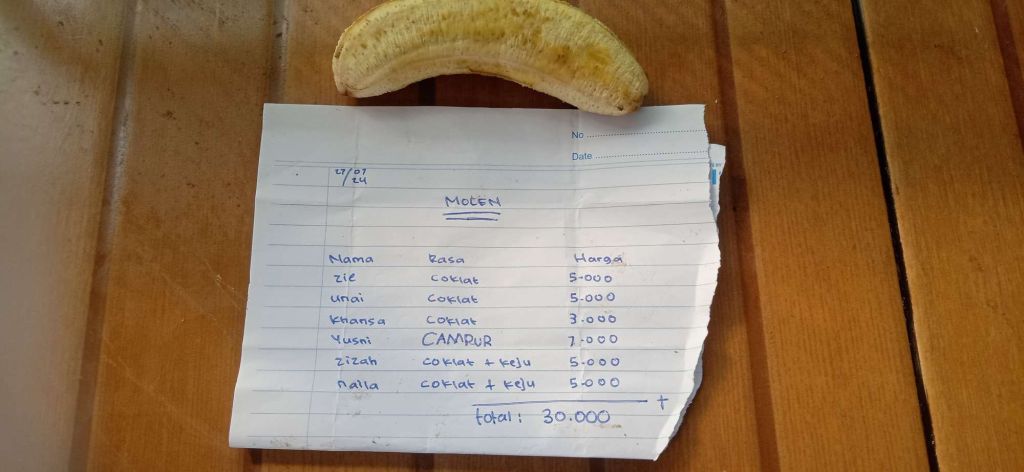 No
Date
27/07 24
MOLEN
Nama Rasa Harga
Zie Coklat 5.000
Unai Coklat 5.000
Khansa Coklat 3.000
Yusni CAMPUR 7.000
Zizah Coklat + Keju 5.000
nalla Coklat + Keju 5.000
+
total : 30.000